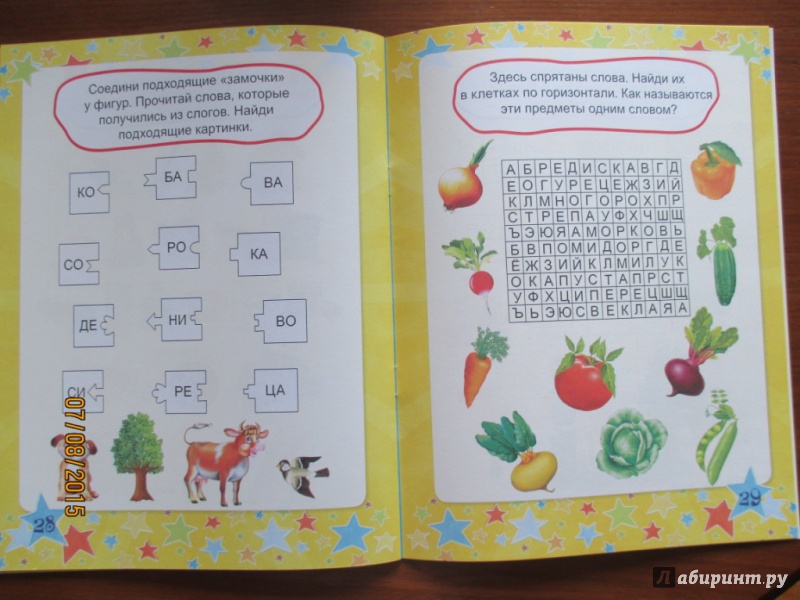 Соедини подходящие «замочки»
у фигур. Прочитай слова, которые
получились из слогов. Найди
подходящие картинки.
КО БА ВА
СО РО КА
ДЕ НИ ВО
СИ РЕ ЦА
07/08/2015
28
Здесь спрятаны слова. Найди их
в клетках по горизонтали. Как называются
эти предметы одним словом?
АБРЕДИСКАВГД
ЕОГУРЕЦЕЖЗИЙ
КЛМНОГОРОХПР
СТРЕПАУФХЧШЩ
ЪЭЮЯАМОРКОВЬ
БВПОМИДОРГДЕ
ЁЖЗИЙКЛМИЛУК
ОКАПУСТАПРСТ
УФХЦИПЕРЕЦШЩ
ЪЬЭЮСВЕКЛАЯА
29
Лабиринт.ру